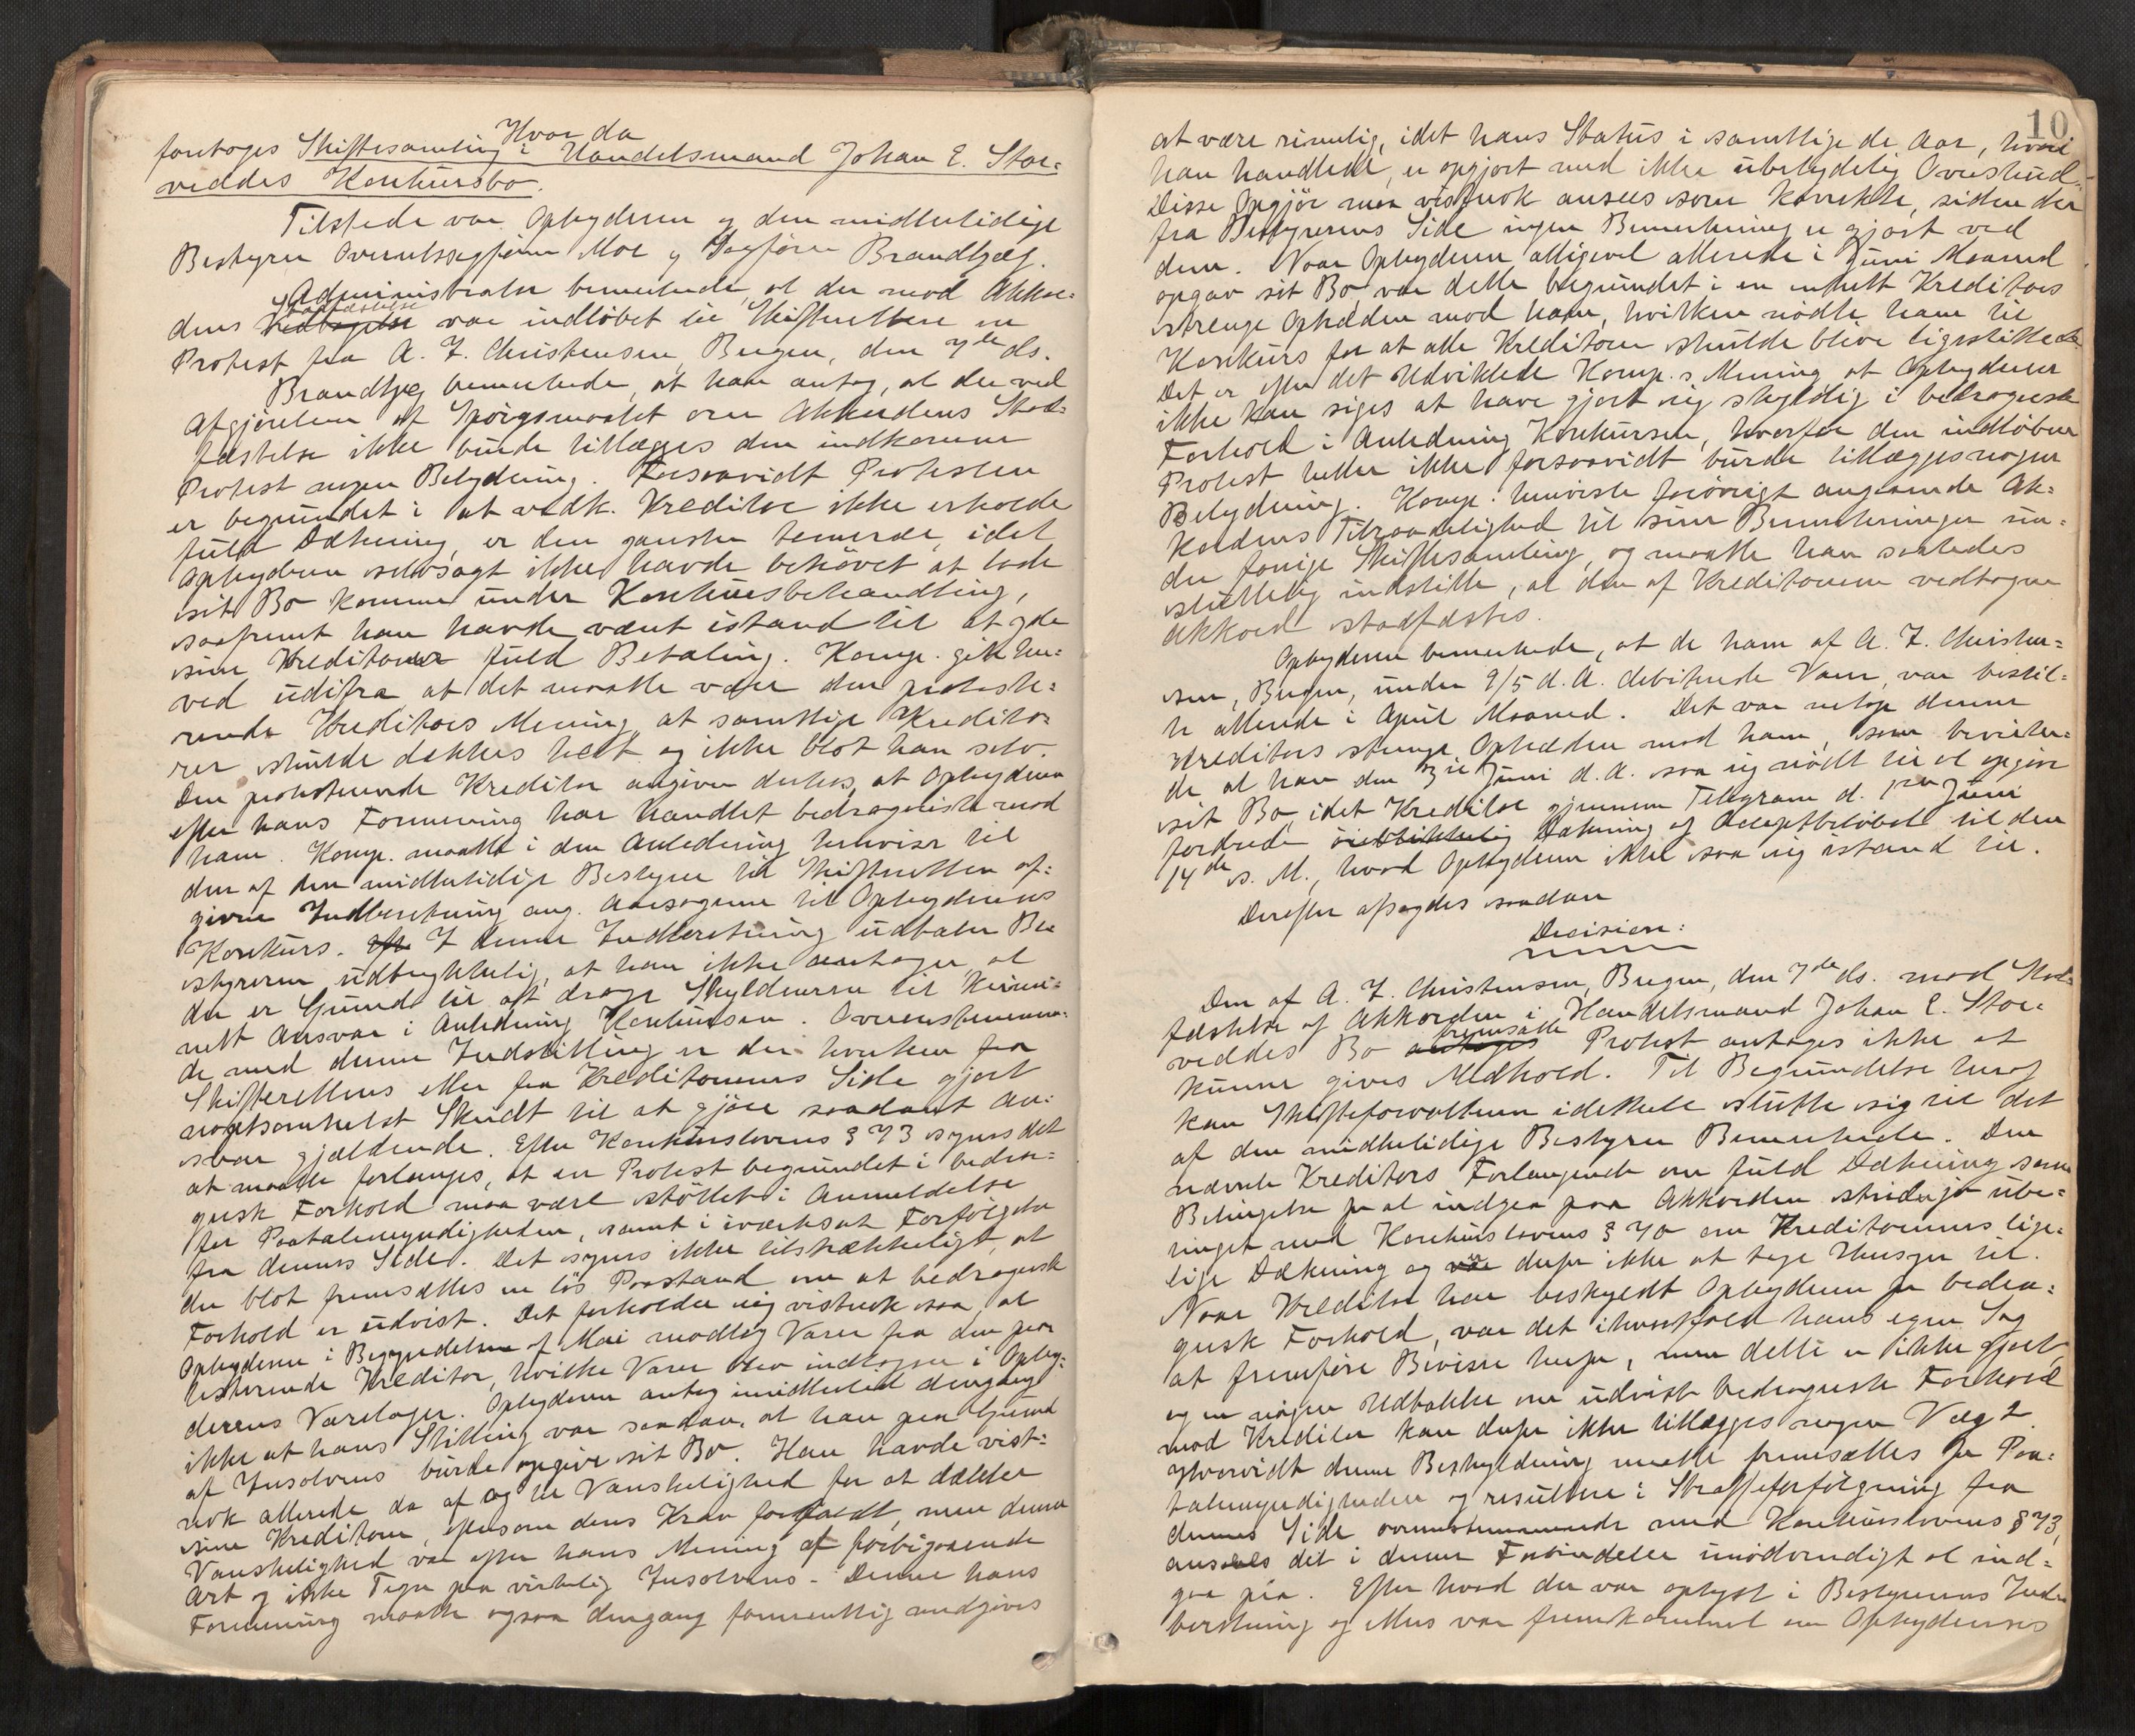 Hvor da
foretoges Skiftesamling i Handelsmand Johan E. Stor-
veddes Konkursbo.
Tilstede var Opbyderen og den midlertidige
Bestyrer Overretssagfører Moe og Sagfører Brandtzæg.
Administrator bemerkede at der mod Akkor-
dens Vedtagelse Stadfæstelse var indløbet til Skifteretten en
Protest fra A. Z. Christensen, Bergen, den 7de ds.
Brandtzæg bemerkede, at han antog, at der ved
Afgjørelsen af Spørgsmaalet om Akkordens Stad-
fæstelse ikke burde tillægges den indkomne
Protest nogen Betydning. Forsaavidt Protesten
er begrundet i at vedk. Kreditor ikke erholder
fuld Dækning, er den ganske temerær, idet
Opbyderen selvsagt ikke havde behøvet at lade
sit Bo komme under Konkursbehandling,
saafremt han havde været istand til at yde
sine Kreditorer fuld Betaling. Komp. gik her-
ved udifra at det maatte være den proteste-
rende Kreditors Mening, at samtlige Kredito-
rer skulde dækkes helt og ikke blot han selv.
Den protesterende Kreditor angiver derhos, at Opbyderen
efter hans Formening har handlet bedragerisk mod
ham. Komp. maatte i den Anledning henvise til
den af den midlertidige Bestyrer til Skifteretten af-
givne Indberetning ang. Aarsagerne til Opbyderens
Konkurs. I denne Indberetning udtaler Be-
styreren udtrykkelig, at han ikke antager at
der er Grund til at drage Skyldneren til Krimi-
nelt Ansvar i Anledning Konkursen. Overensstemmen-
de med denne Indstilling er der hverken fra
Skifterettens eller fra Kreditorernes Side gjort
noetsomhelst Skridt til at gjøre saadant An-
svar gjældende. Efter Konkurslovens § 73 synes det
at maatte forlanges, at en Protest begrundet i bedra-
gersk Forhold maa være støttet i Anmeldelse
for Paatalemyndigheden, samt i iværksat Forfølgelse
fra dennes Side. Det synes ikke tilstrækkeligt, at
der blot fremsættes en løs Paastand om at bedragersk
Forhold er udvist. Det forholder sig vistnok saa, at
Opbyderen i Begyndelsen af Mai modtog Varer fra den pro-
testerende Kreditor, hvilke Varer blev indtagne i Opby-
derens Varelager. Opbyderen antog imidlertid dengang
ikke at hans Stilling var saadan, at han paa Grund
af Insolvens burde opgive sit Bo. Han havde vist-
nok allerede da af og til Vanskelighed for at dække
sine Kreditorer, eftersom deres Krav forfaldt, men denne
Vanskelighed var efter hans Mening af forbigaaende
Art og ikke Tegn paa virkelig Insolvens. Denne hans
Formening maatte ogsaa dengang formentlig medgives
10.
at være rimelig, idet hans Status i samtlige de Aar, hvori
han handlede, er opgjort med ikke ubetydelig Overskud.
Disse Opgjør maa vistnok ansees som korrekte, siden der
fra Bestyrerens Side ingen Bemerkning er gjort ved
dem. Naar Opbyderen alligevel allerede i Juni Maaned
opgav sit Bo, var dette begrundet i en enkelt Kreditors
strenge Optræden mod ham, hvilken nødte ham til
Konkurs for at alle Kreditorer skulde blive ligestillede.
Det er efter det Udviklede Komp.s Mening at Opbyderen
ikke kan siges at have gjort sig skyldig i bedragersk
Forhold i Anledning Konkursen, hvorfor den indløbne
Protest heller ikke forsaavidt burde tillægges nogen
Betydning. Komp. henviste forøvrigt angaaende Ak-
kordens Tilraadelighed til sine Bemerkninger un-
der forrige Skiftesamling, og maatte han saaledes
sluttelig indstille, at den af Kreditorerne vedtagne
Akkord stadfæstes.
Opbyderen bemerkede, at de ham af A. Z. Christen-
sen, Bergen, under 9/5 d. A. debiterede Varer, var bestil-
te allerede i April Maaned. Det var netop denne
Kreditors strenge Optræden mod ham, som bevirke-
de at han den Juni d. A. saa sig nødt til at opgive
sit Bo, idet Kreditor gjennem Telegram d. 1ste Juni
fordrede øieblikkelig Dækning af Acceptbeløbet til den
14de s. M., hvad Opbyderen ikke saa sig istand til.
Derefter afsagdes saadan
Decision:
Den af A. Z. Christensen, Bergen, den 7de ds. mod Stad-
fæstelse af Akkorden i Handelsmand Johan E. Stor-
veddes Bo antages fremsatte Protest antages ikke at
kunne gives Medhold. Til Begrundelse heraf
kan Skifteforvalteren idethele slutte sig til det
af den midlertidige Bestyrer Bemerkede. Den
nævnte Kreditors Forlangende om fuld Dækning som
Betingelse for at indgaa paa Akkorden strider jo ube-
tinget mod Konkurslovens § 70 om Kreditorernes lige-
lige Dækning og er derfor ikke at tage Hensyn til.
Naar Kreditor har beskyldt Opbyderen for bedra-
gersk Forhold, var det ihvertfald hans egen Sag
at fremføre Beviser herfor, men dette er ikke gjort,
og en nøgen Udtalelse om udvist bedragersk Forhold
mod Kreditor kan derfor ikke tillægges nogen Vægt.
Hvorvidt denne Beskyldning maatte fremsættes for Paa-
talemyndigheden og resultere i Straffeforfølgning fra
dennes Side overensstemmende med Konkurslovens § 73,
ansees det i denne Forbindelse unødvendigt at ind-
gaa paa. Efter hvad der var oplyst i Bestyrerens Ind-
beretning og ellers var fremkommet om Opbyderens